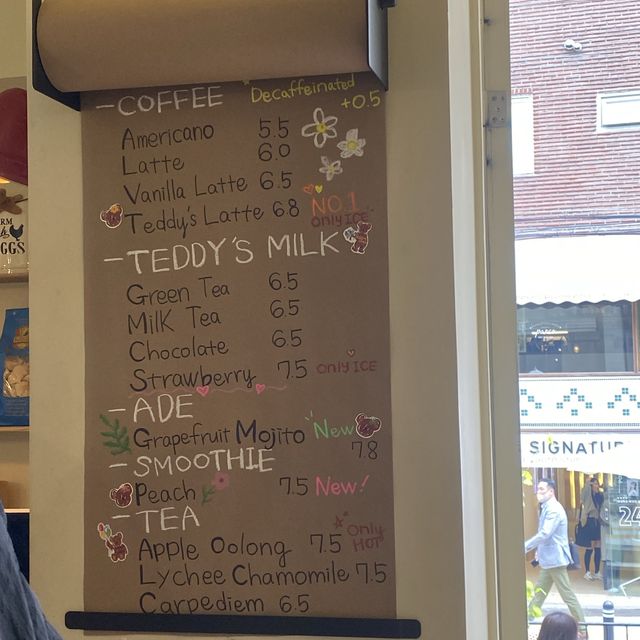 - COFFEE Decaffeinated +0.5
Americano 5.5
Latte 6.0
Vanilla Latte 6.5
Teddy's Latte 6.8 NO.1 only ICE
- TEDDY'S MILK
Green Tea 6.5
Milk Tea 6.5
Chocolate 6.5
Strawberry 7.5 only ICE
- ADE
Grapefruit Mojito New 7.8
- SMOOTHIE
Peach 7.5 New!
- TEA
Apple Oolong 7.5 Only HOT
Lychee Chamomile 7.5
Carpediem 6.5
SIGNATUR
24